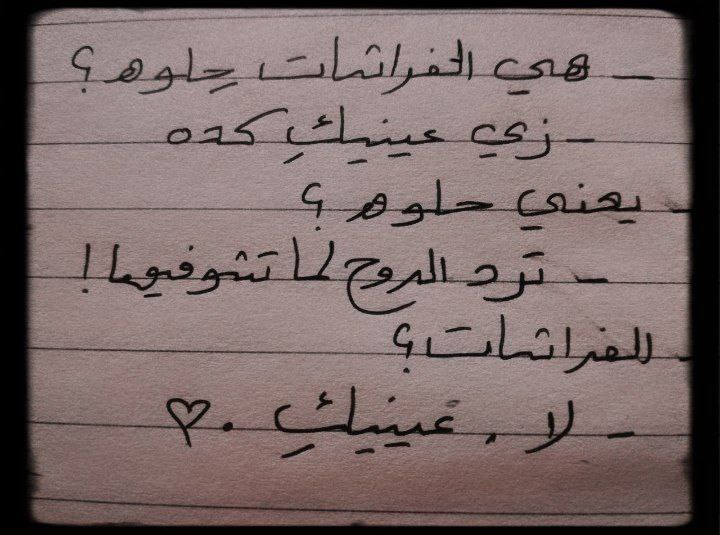 - هي الفراشات حِلوه ؟
- زي عينيكِ كده
- يعني حلوه ؟
- ترد الروح لما تشوفيها !
- الفراشات ؟
- لا . عينيكِ . ♡